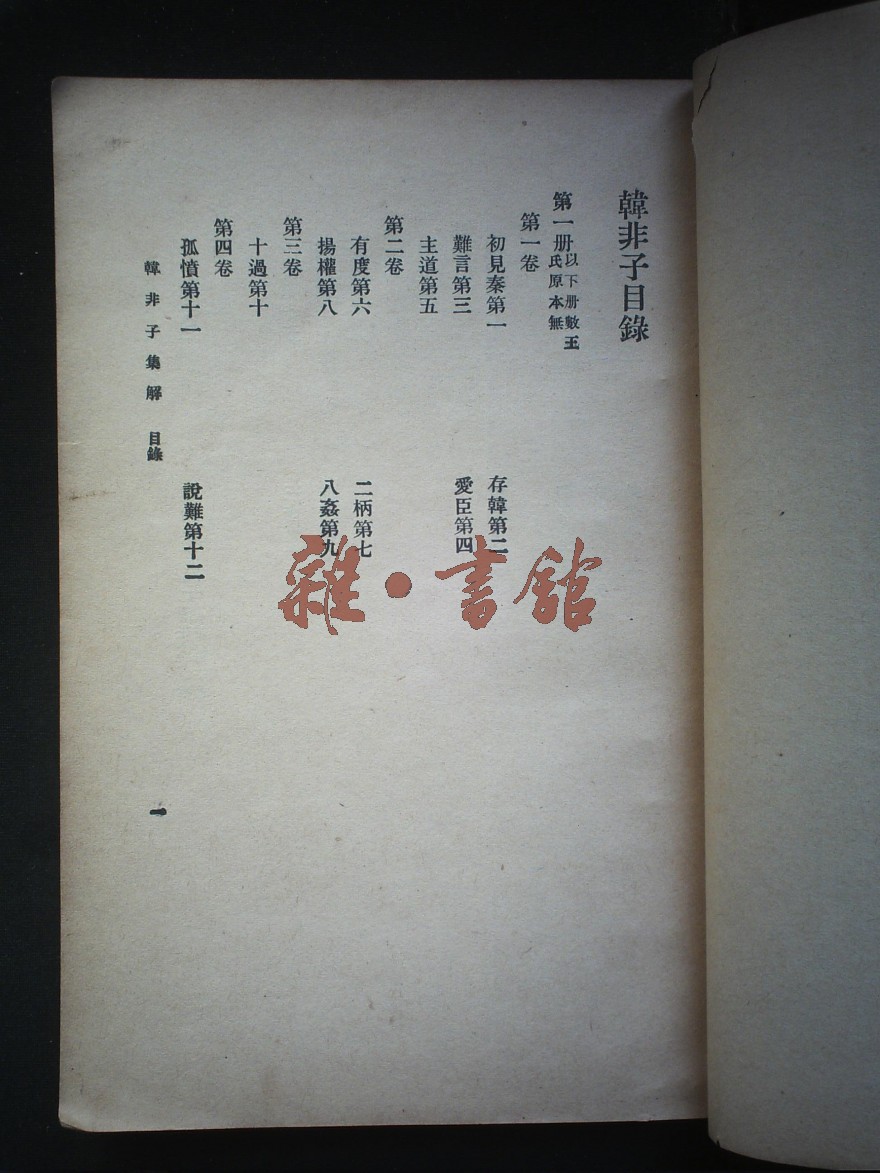 韓非子目錄
第一册以下册數王氏原本無
第一卷
初見秦第一 存韓第二
難言第三 愛臣第四
主道第五
第二卷
有度第六 二柄第七
揚權第八 八姦第九
第三卷
十過第十
第四卷
孤憤第十一 說難第十二
韓非子集解 目錄 一
雜·書館